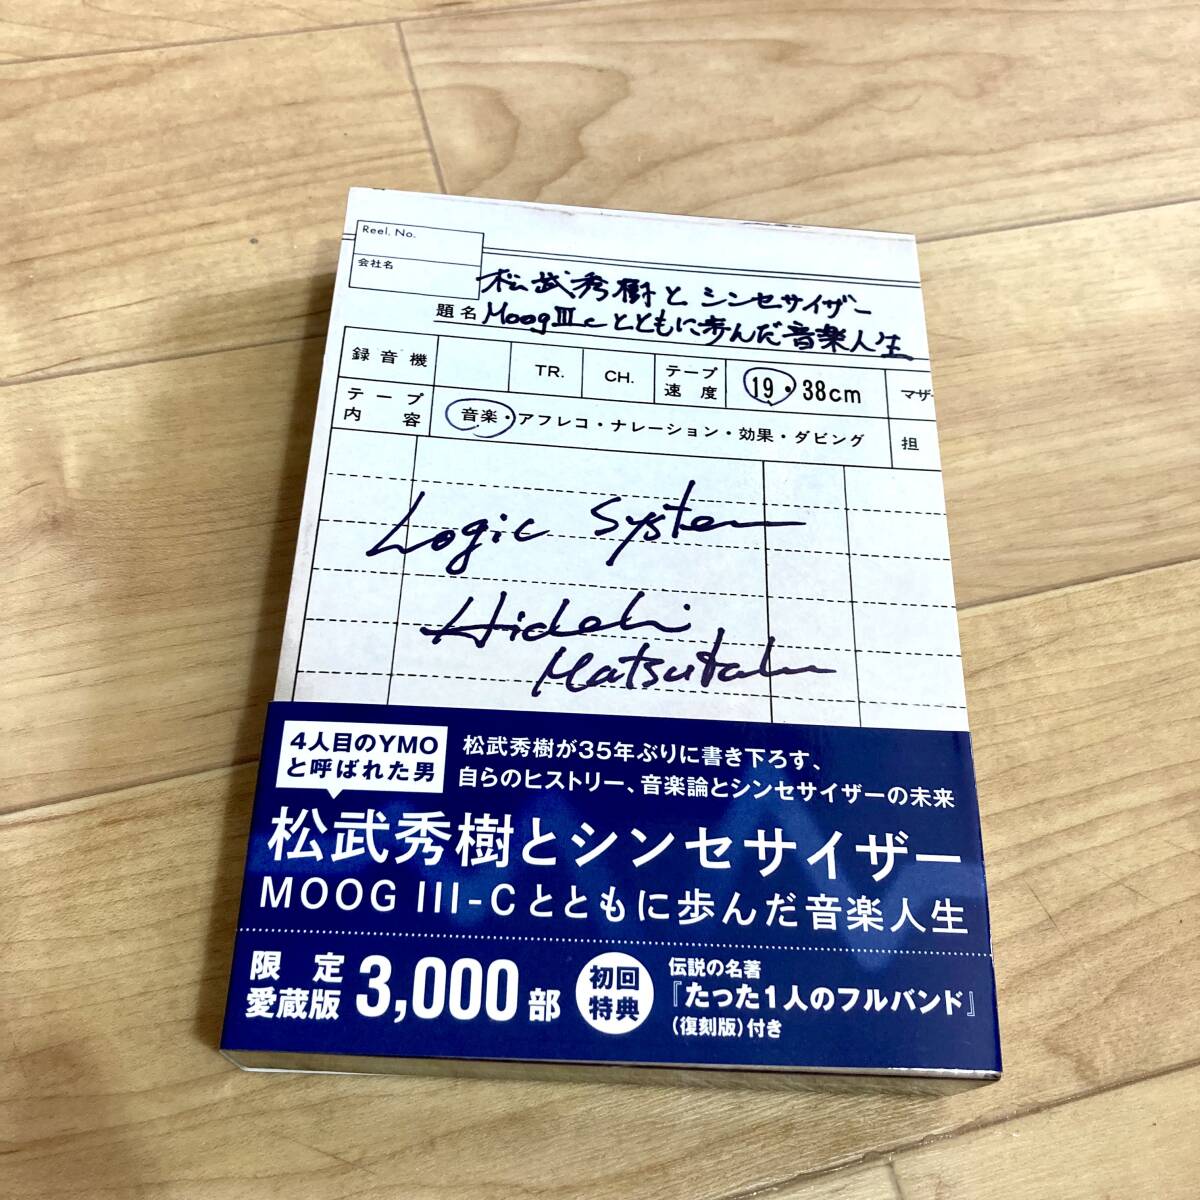 Reel. No.
会社名
題名 松武秀樹とシンセサイザー
MoogⅢcとともに歩んだ音楽人生
録音機 TR. CH. テープ速度 19・38cm マザー
テープ内容 音楽・アフレコ・ナレーション・効果・ダビング 担
Logic System
Hideki
Matsutake
4人目のYMO
と呼ばれた男
松武秀樹が35年ぶりに書き下ろす、
自らのヒストリー、音楽論とシンセサイザーの未来
松武秀樹とシンセサイザー
MOOG III-Cとともに歩んだ音楽人生
限定
愛蔵版 3,000部
初回
特典
伝説の名著
『たった1人のフルバンド』
(復刻版)付き